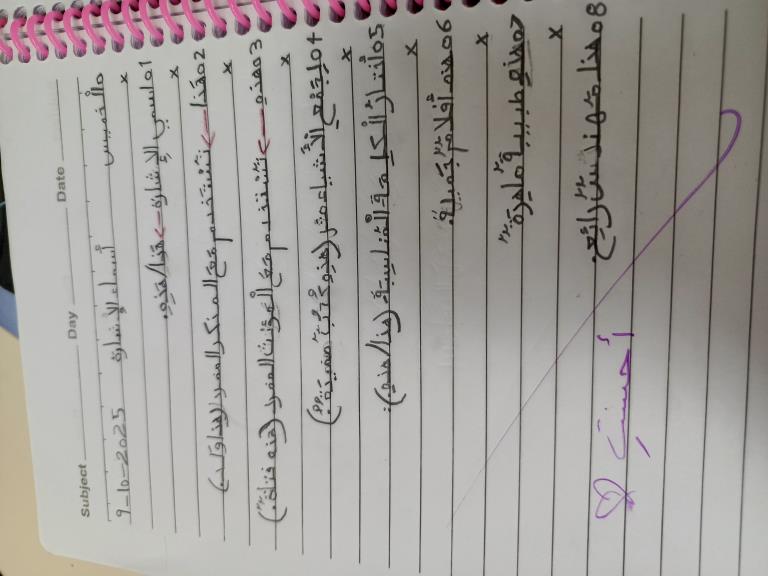 Subject Day Date
9-10-2025 أسماء الإشارة الخميس
x
01 اسمي الإشارة -> هذا/هذه.
x
02 هذا -> نستخدم مع المذكر المفرد (هذا ولد)
x
03 هذه -> نستخدم مع المؤنث المفرد (هذه فتاة)
x
04 لجمع الأشياء مثل (هذه كتب مفيدة)
x
05 أختار الكلمة المناسبة (هذا/هذه):
x
06 هذه أقلام جميلة.
x
07 هذه طبيبة ماهرة
x
08 هذا مهندس رائع.
أحسنتِ